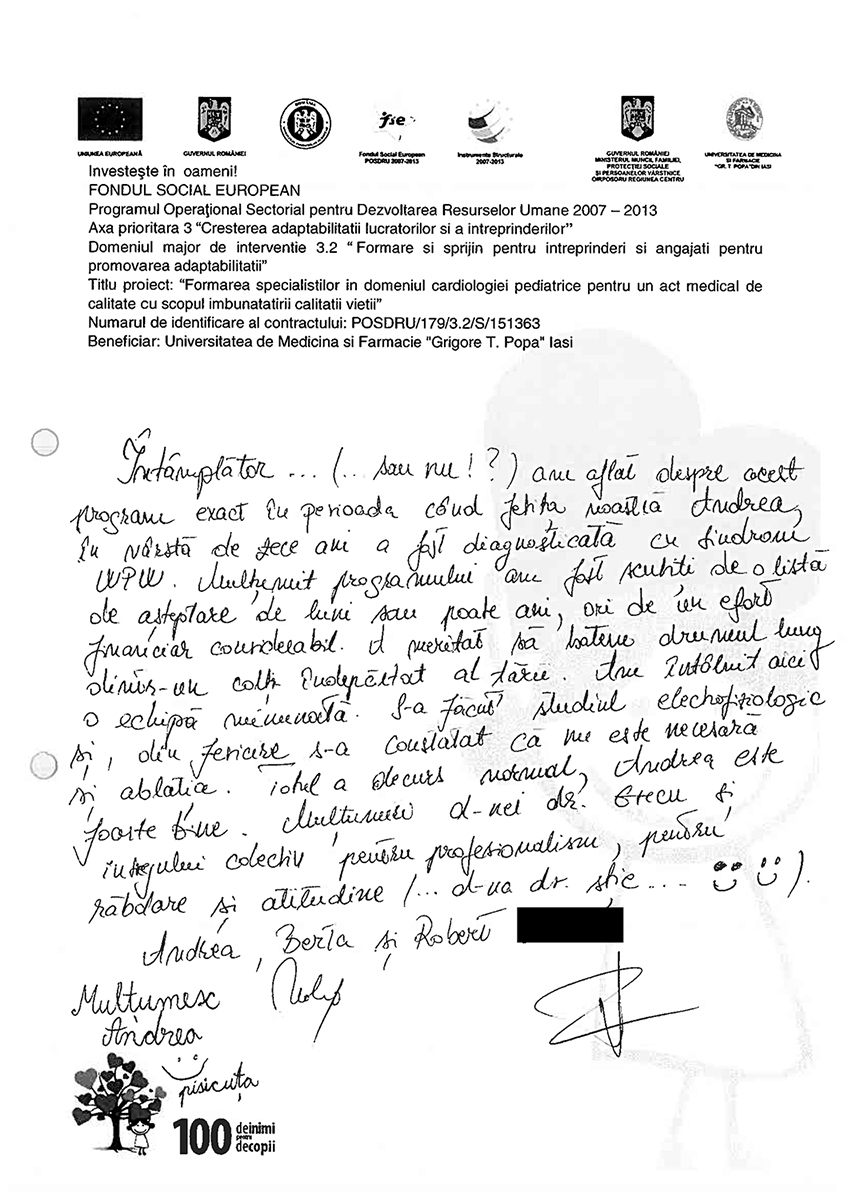 UNIUNEA EUROPEANĂ
GUVERNUL ROMÂNIEI
fse
Fondul Social European
POSDRU 2007-2013
Instrumente Structurale
2007-2013
GUVERNUL ROMÂNIEI
MINISTERUL MUNCII, FAMILIEI,
PROTECŢIEI SOCIALE
ŞI PERSOANELOR VÂRSTNICE
OIRPOSDRU REGIUNEA CENTRU
UNIVERSITATEA DE MEDICINA
SI FARMACIE
"GR. T. POPA" DIN IASI
Investeşte în oameni!
FONDUL SOCIAL EUROPEAN
Programul Operaţional Sectorial pentru Dezvoltarea Resurselor Umane 2007 – 2013
Axa prioritara 3 “Cresterea adaptabilitatii lucratorilor si a intreprinderilor”
Domeniul major de interventie 3.2 “ Formare si sprijin pentru intreprinderi si angajati pentru
promovarea adaptabilitatii”
Titlu proiect: “Formarea specialistilor in domeniul cardiologiei pediatrice pentru un act medical de
calitate cu scopul imbunatatirii calitatii vietii”
Numarul de identificare al contractului: POSDRU/179/3.2/S/151363
Beneficiar: Universitatea de Medicina si Farmacie "Grigore T. Popa" Iasi
Întâmplător ... (... sau nu!?) am aflat despre acest
program exact în perioada când fetița noastră Andrea,
în vârstă de zece ani a fost diagnosticată cu sindrom
WPW. Mulțumit programului am fost scutiti de o listă
de așteptare de luni sau poate ani, ori de un efort
financiar considerabil. A meritat să batem drumul lung
dintr-un colț îndepărtat al țării. Am întâlnit aici
o echipă minunată. S-a făcut studiul electrofiziologic
și, din fericire s-a constatat că nu este necesară
și ablatia. Totul a decurs normal, Andrea este
foarte bine. Mulțumim d-nei dr. Grecu și
întregului colectiv pentru profesionalism, pentru
răbdare și atitudine (... d-na dr. știe ....).
Andrea, Berta și Robert
Multumesc
Andrea
pisicuța
100 deinimi
pentru
decopii